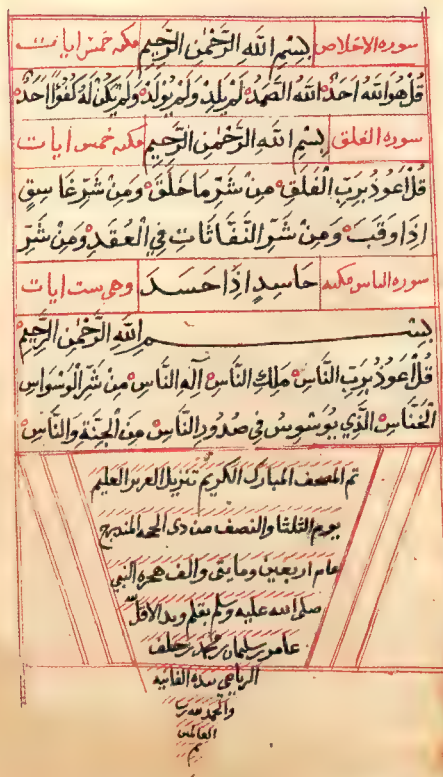 سورة الاخلاص بِسْمِ اللهِ الرَّحْمٰنِ الرَّحِيْمِ مكية خمس ايات
قُلْ هُوَ اللهُ اَحَدٌ اَللهُ الصَّمَدُ لَمْ يَلِدْ وَلَمْ يُوْلَدْ وَلَمْ يَكُنْ لَهُ كُفُوًا اَحَدٌ
سورة الفلق بِسْمِ اللهِ الرَّحْمٰنِ الرَّحِيْمِ مكية خمس ايات
قُلْ اَعُوْذُ بِرَبِّ الْفَلَقِ مِنْ شَرِّ مَا خَلَقَ وَمِنْ شَرِّ غَاسِقٍ
اِذَا وَقَبَ وَمِنْ شَرِّ النَّفَّاثَاتِ فِي الْعُقَدِ وَمِنْ شَرِّ
سورة الناس مكية حَاسِدٍ اِذَا حَسَدَ وهي ست ايات
بِسْمِ اللهِ الرَّحْمٰنِ الرَّحِيْمِ
قُلْ اَعُوْذُ بِرَبِّ النَّاسِ مَلِكِ النَّاسِ اِلٰهِ النَّاسِ مِنْ شَرِّ الْوَسْوَاسِ
الْخَنَّاسِ الَّذِيْ يُوَسْوِسُ فِيْ صُدُوْرِ النَّاسِ مِنَ الْجِنَّةِ وَالنَّاسِ
تم المصحف المبارك الكريم تنزيل العزيز العليم
يوم الثلثا والنصف من ذى الحجه
عام اربعين ومايتى والف هجرة النبي
صلى الله عليه وسلم بقلم ويد الاقل
عامر بن سلمان بن محمد بن خلف
الريامي بيده الفانيه
والحمد لله رب
العالمين
تم